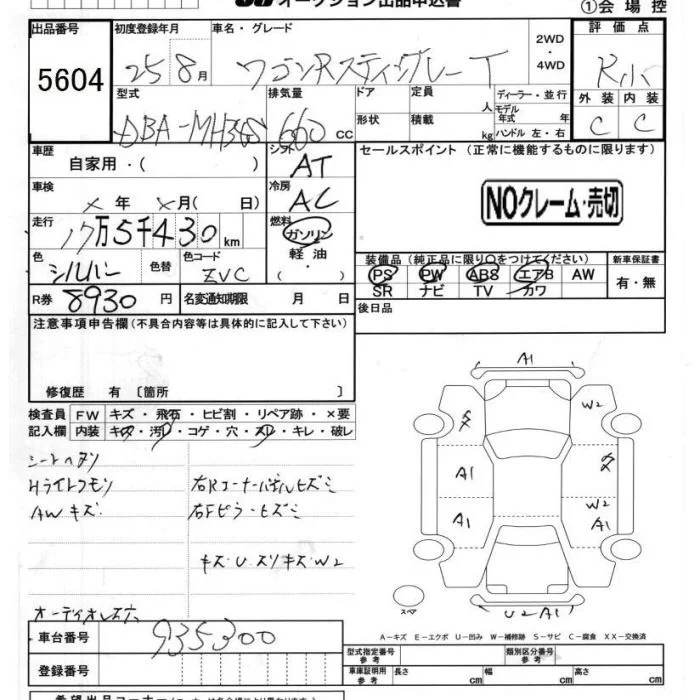 オークション出品申込書
①会場控
出品番号 初度登録年月 車名・グレード 2WD ・ 4WD 評価点
5604 25 8月 ワゴンRスティングレー T
型式 排気量 ドア 定員 人 ディーラー・並行 外装 内装
DBA-MH34S 660 cc 形状 積載 kg モデル年式 年 ハンドル 左・右 C C
車歴 シフト セールスポイント (正常に機能するものに限ります)
自家用・( ) AT
車検 × 年 × 月( 日) 冷房 AC
NOクレーム・売切
走行 燃料
17万5千430 km ガソリン 軽油 ( )
色 シルバー 色替 色コード ZVC
装備品(純正品に限り○をつけてください) 新車保証書
PS PW ABS エアB AW 有・無
SR ナビ TV カワ
R券 8930 円 名変通知期限 月 日 後日品
注意事項申告欄(不具合内容等は具体的に記入して下さい)
修復歴 有 〔箇所 〕
検査員 FW キズ・飛石・ヒビ割・リペア跡・×要
記入欄 内装 キズ・汚れ・コゲ・穴・スレ・キレ・破レ
シートヘタリ
Hライトクモリ 右Rコーナーパネルヒズミ
AWキズ 右Fピラーヒズミ
キズ・U スリキズ・W2
オーディオレス穴
A1
W2
A1
W2
A1 A1
スペア
U2 A1
A-キズ E-エクボ U-凹み W-補修跡 S-サビ C-腐食 XX-交換済
車台番号 935300
型式指定番号 参考 類別区分番号 参考
登録番号 車庫証明用 参考 長さ cm 幅 cm 高さ cm
希望出品コーナー